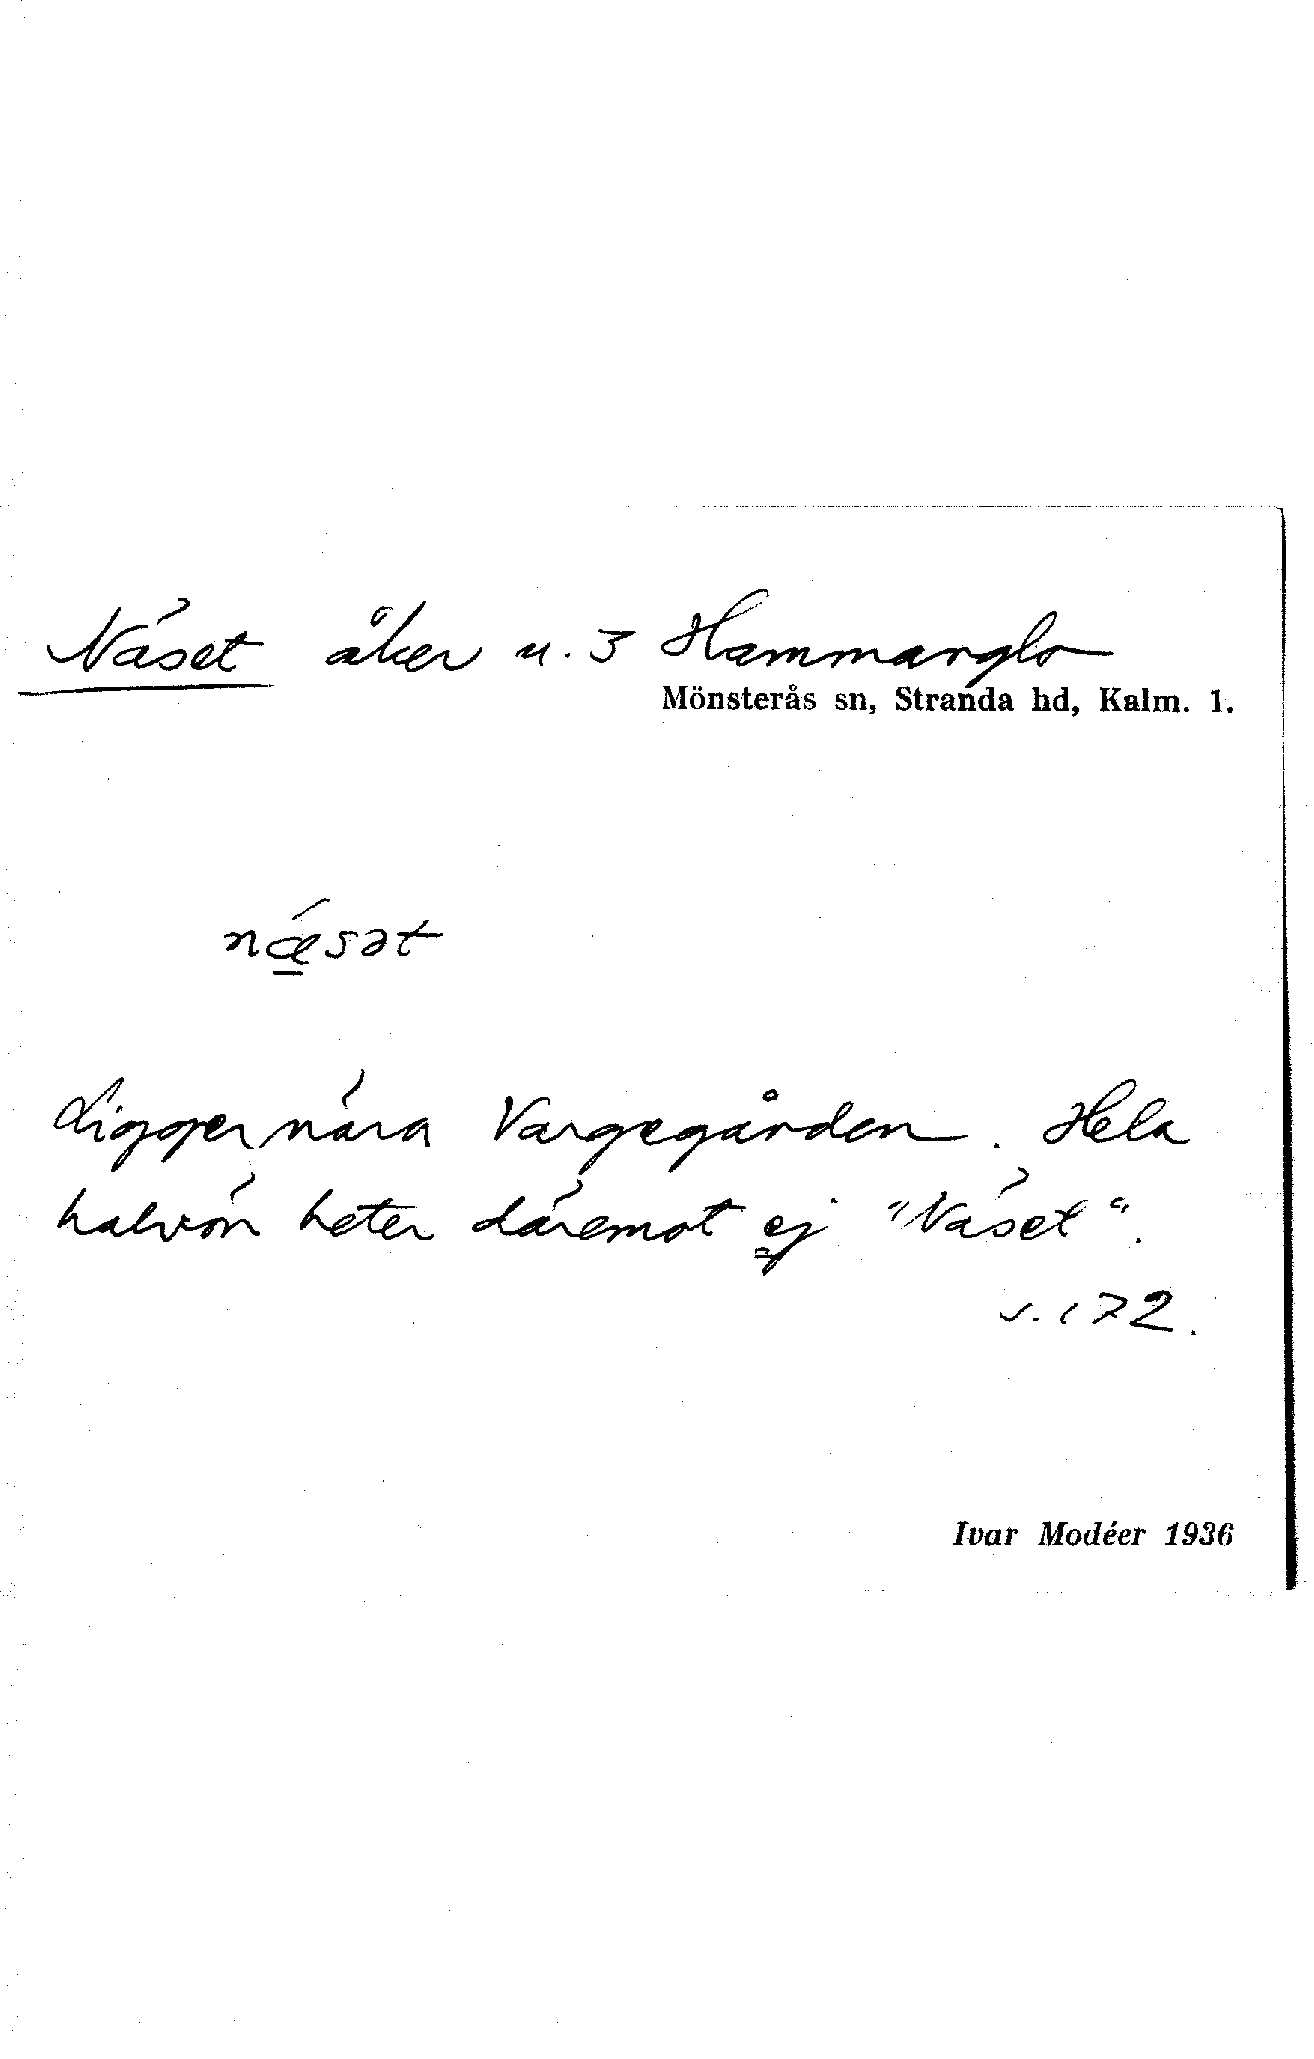 Näset åker u. 3 Hammarglo
Mönsterås sn, Stranda hd, Kalm. l.
nǽsət
Ligger nära Vargegården. Hela
halvön heter däremot ej "Näset".
s. 172.
Ivar Modéer 1936